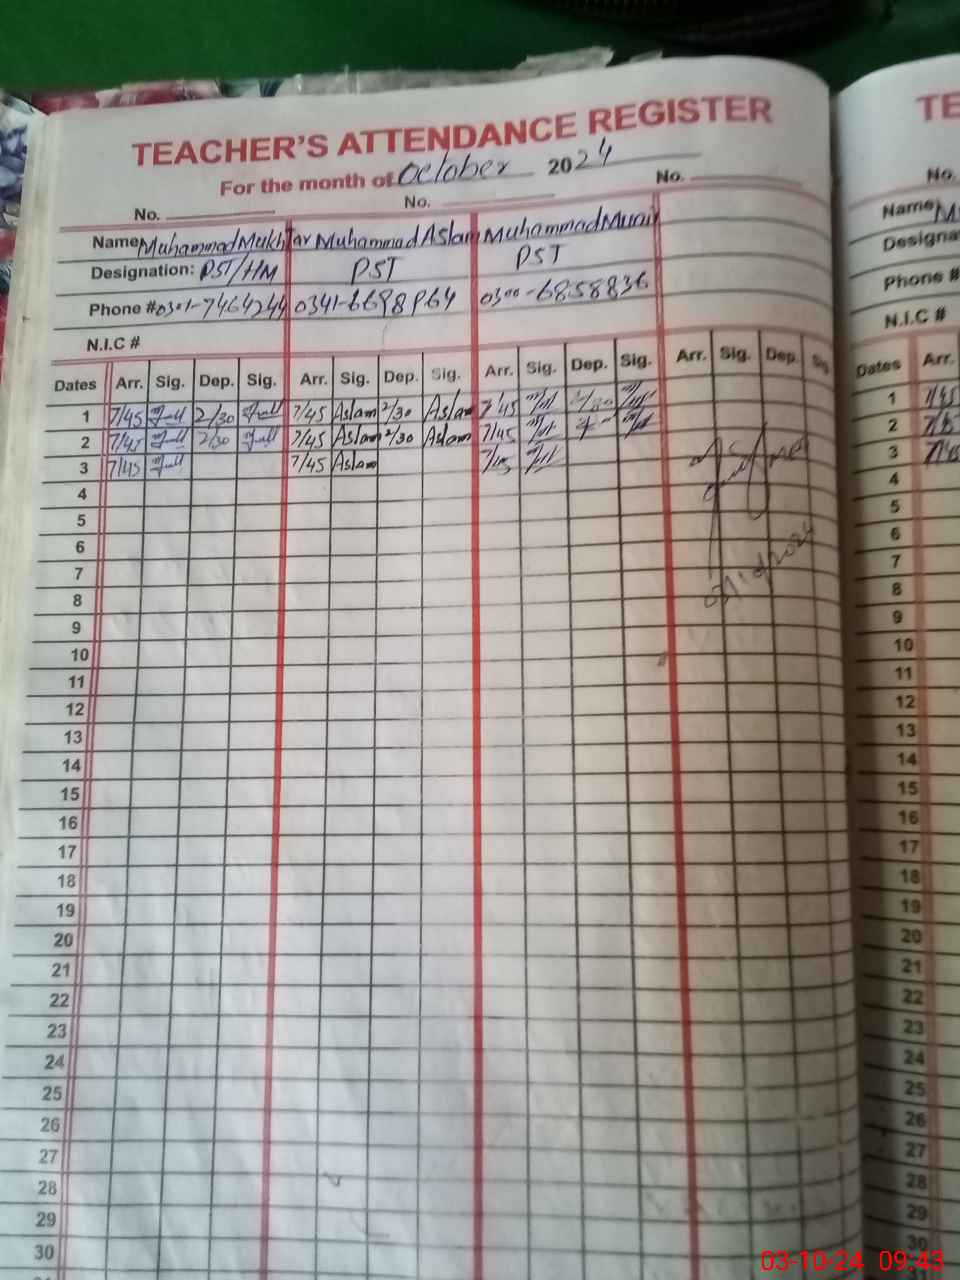 TEACHER'S ATTENDANCE REGISTER
For the month of October 2024
No. No. No.
Name Muhammad Mukhtar Muhammad Aslam Muhammad Munir
Designation: PST/HM PST PST
Phone # 0301-7464244 0341-6698964 0300-6858836
N.I.C #
Dates Arr. Sig. Dep. Sig. Arr. Sig. Dep. Sig. Arr. Sig. Dep. Sig. Arr. Sig. Dep. Sig.
1 7/45 2/30 7/45 Aslam 2/30 Aslam 7/45 2/30
2 7/45 2/30 7/45 Aslam 2/30 Aslam 7/45
3 7/45 7/45 Aslam 7/45
4
5
6
7
8
9
10
11
12
13
14
15
16
17
18
19
20
21
22
23
24
25
26
27
28
29
30
TE
No.
Name
Designa
Phone #
N.I.C #
Dates Arr.
1 7/45
2 7/45
3 7/45
4
5
6
7
8
9
10
11
12
13
14
15
16
17
18
19
20
21
22
23
24
25
26
27
28
29
30
03-10-24 09:43